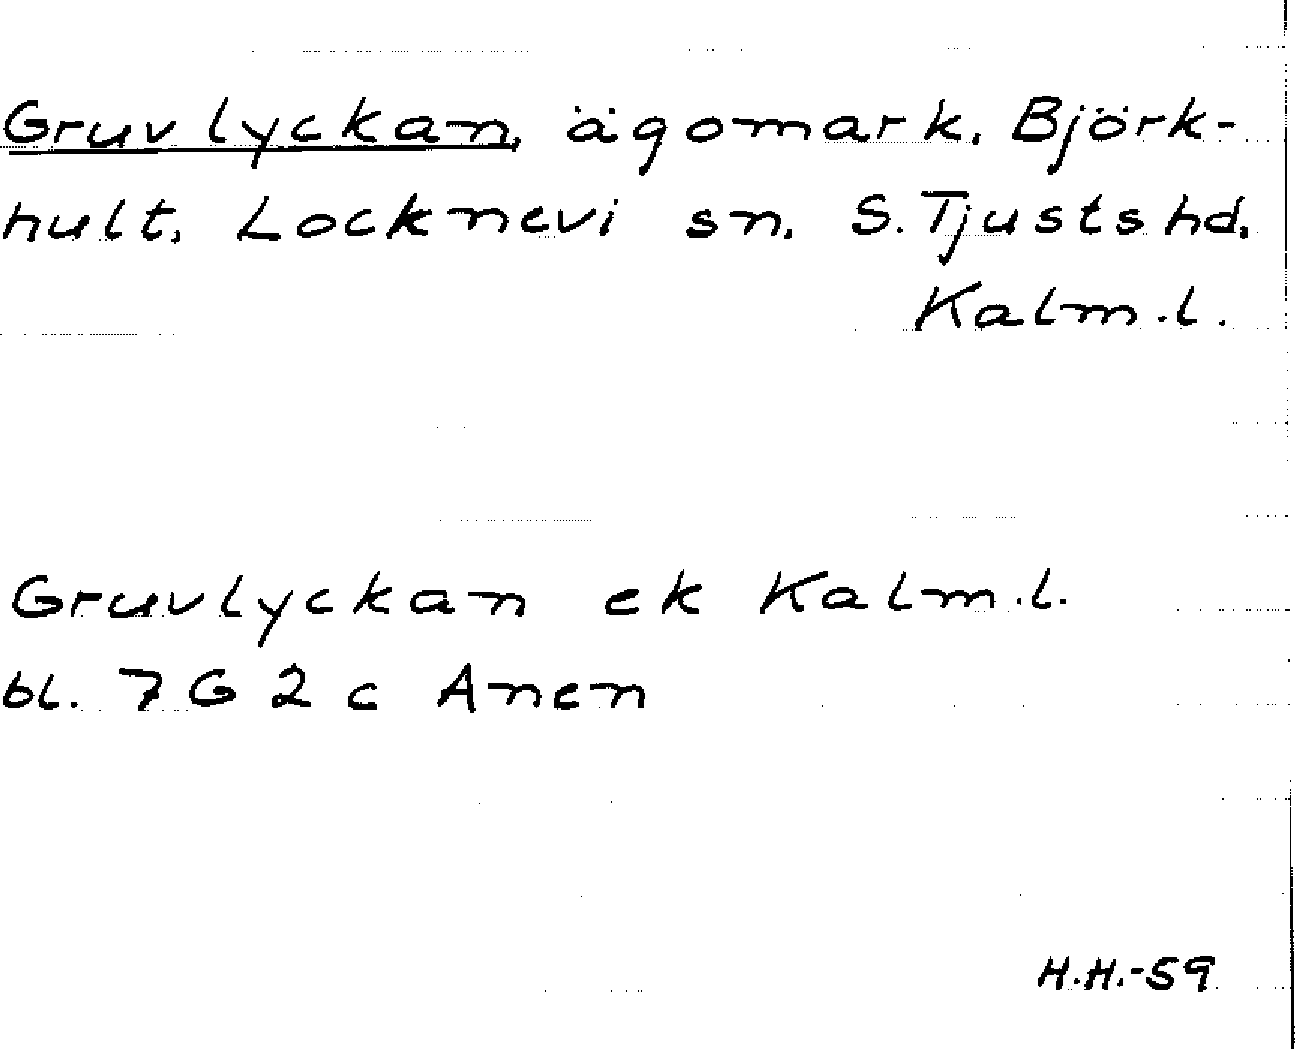 Gruvlyckan, ägomark, Björk-
hult, Locknevi sn, S. Tjusts hd,
Kalm.l.
Gruvlyckan ek Kalm.l.
bl. 7 G 2 c Anen
H.H.-59